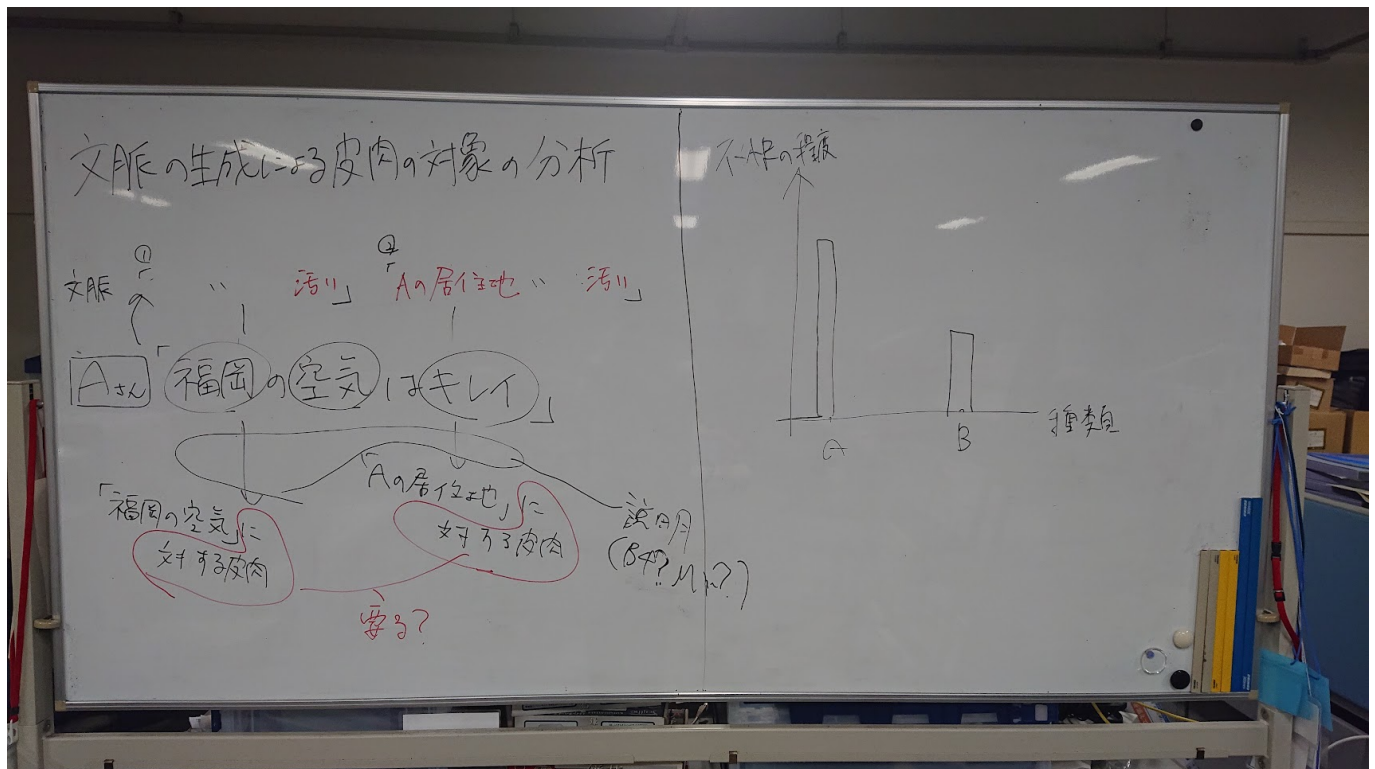 文脈の生成による皮肉の対象の分析
① ②
文脈 「 〃 汚い」 「Aの居住地 〃 汚い」
Aさん 「福岡の空気はキレイ」
「福岡の空気」に
対する皮肉
「Aの居住地」に
対する皮肉
説明
要る?
の程度
A
B
種類